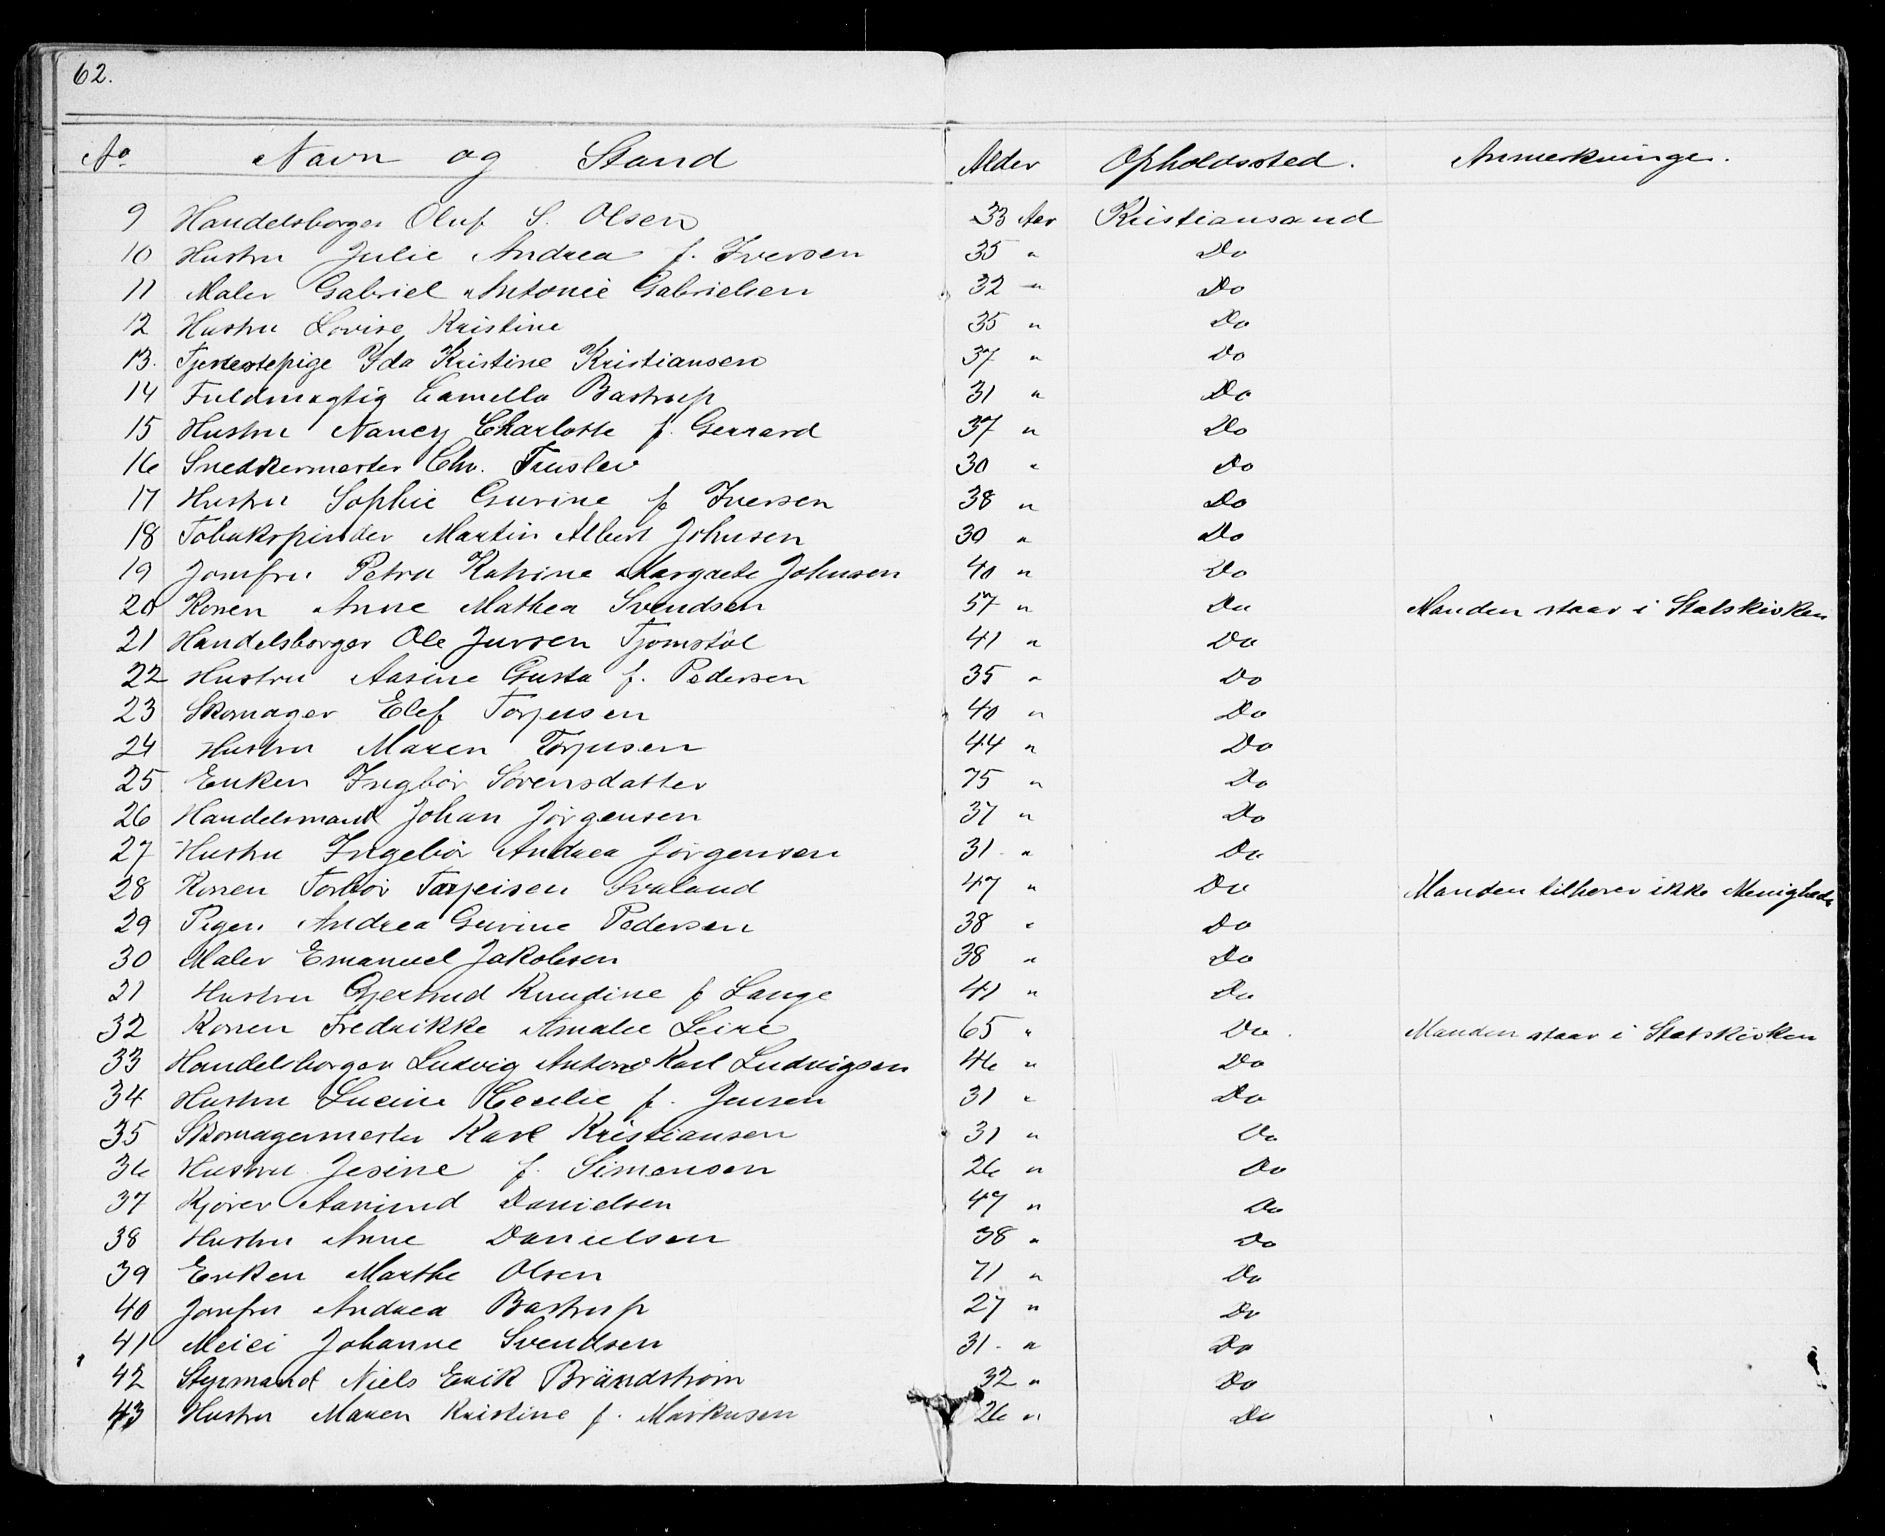 62.
No Navn og Stand Alder Opholdssted. Anmerkninger.
9 Handelsborger Oluf S. Olsen 33 Aar Kristiansand
10 Hustru Julie Andrea f. Iversen 35 " Do
11 Maler Gabriel Antonie Gabrielsen 32 " Do
12 Hustru Lovise Kristine 35 " Do
13. Tjenestepige Ida Kristine Kristiansen 37 " Do
14 Fuldmægtig Camello Bastrup 31 " Do
15 Hustru Nancy Charlotte f. Gerrard 37 " Do
16 Snedkermester Chr. Truslev 30 " Do
17 Hustru Sophie Gurine f Iversen 38 " Do
18 Tobakspinder Martin Albert Johnsen 30 " Do
19 Jomfru Petra Katrine Margrete Johnsen 40 " Do
20 Konen Anne Mathea Svendsen 57 " Do Manden staar i Statskirken
21 Handelsborger Ole Jursen Tjomstøl 41 " Do
22 Hustru Aasine Gusta f. Pedersen 35 " Do
23 Skomager Elef Torjusen 40 " Do
24 Hustru Maren Torjusen 44 " Do
25 Enken Ingbør Sørensdatter 75 " Do
26 Handelsmand Johan Jørgensen 37 " Do
27 Hustru Ingebør Andrea Jørgensen 31 " Do
28 Konen Torbør Torjeisen Svaland 47 " Do Manden tilhører ikke Menighede
29 Pigen Andrea Gurine Pedersen 38 " Do
30 Maler Emanuel Jakobsen 38 " Do
21 Hustru Gjertrud Knudine f Lange 41 " Do
32 Konen Fredrikke Amalie Leire 65 " Do. Manden staar i Statskirken
33 Handelsborger Ludvig Anton Karl Ludvigsen 46 " Do
34 Hustru Lucine Cecilie f. Jensen 31 " Do
35 Skomagermester Karl Kristiansen 31 " Do
36 Hustru Jesine f. Simonsen 26 " Do
37 Kjører Aanund Danielsen 47 " Do
38 Hustru Anne Danielsen 38 " Do
39 Enken Marthe Olsen 71 " Do
40 Jomfru Andrea Bastrup 27 " Do
41 Meiei Johanne Svendsen 31 " Do
42 Styrmand Niels Erik Brändstrøm 32 " Do
43 Hustru Maren Kristine f. Markusen 26 " Do